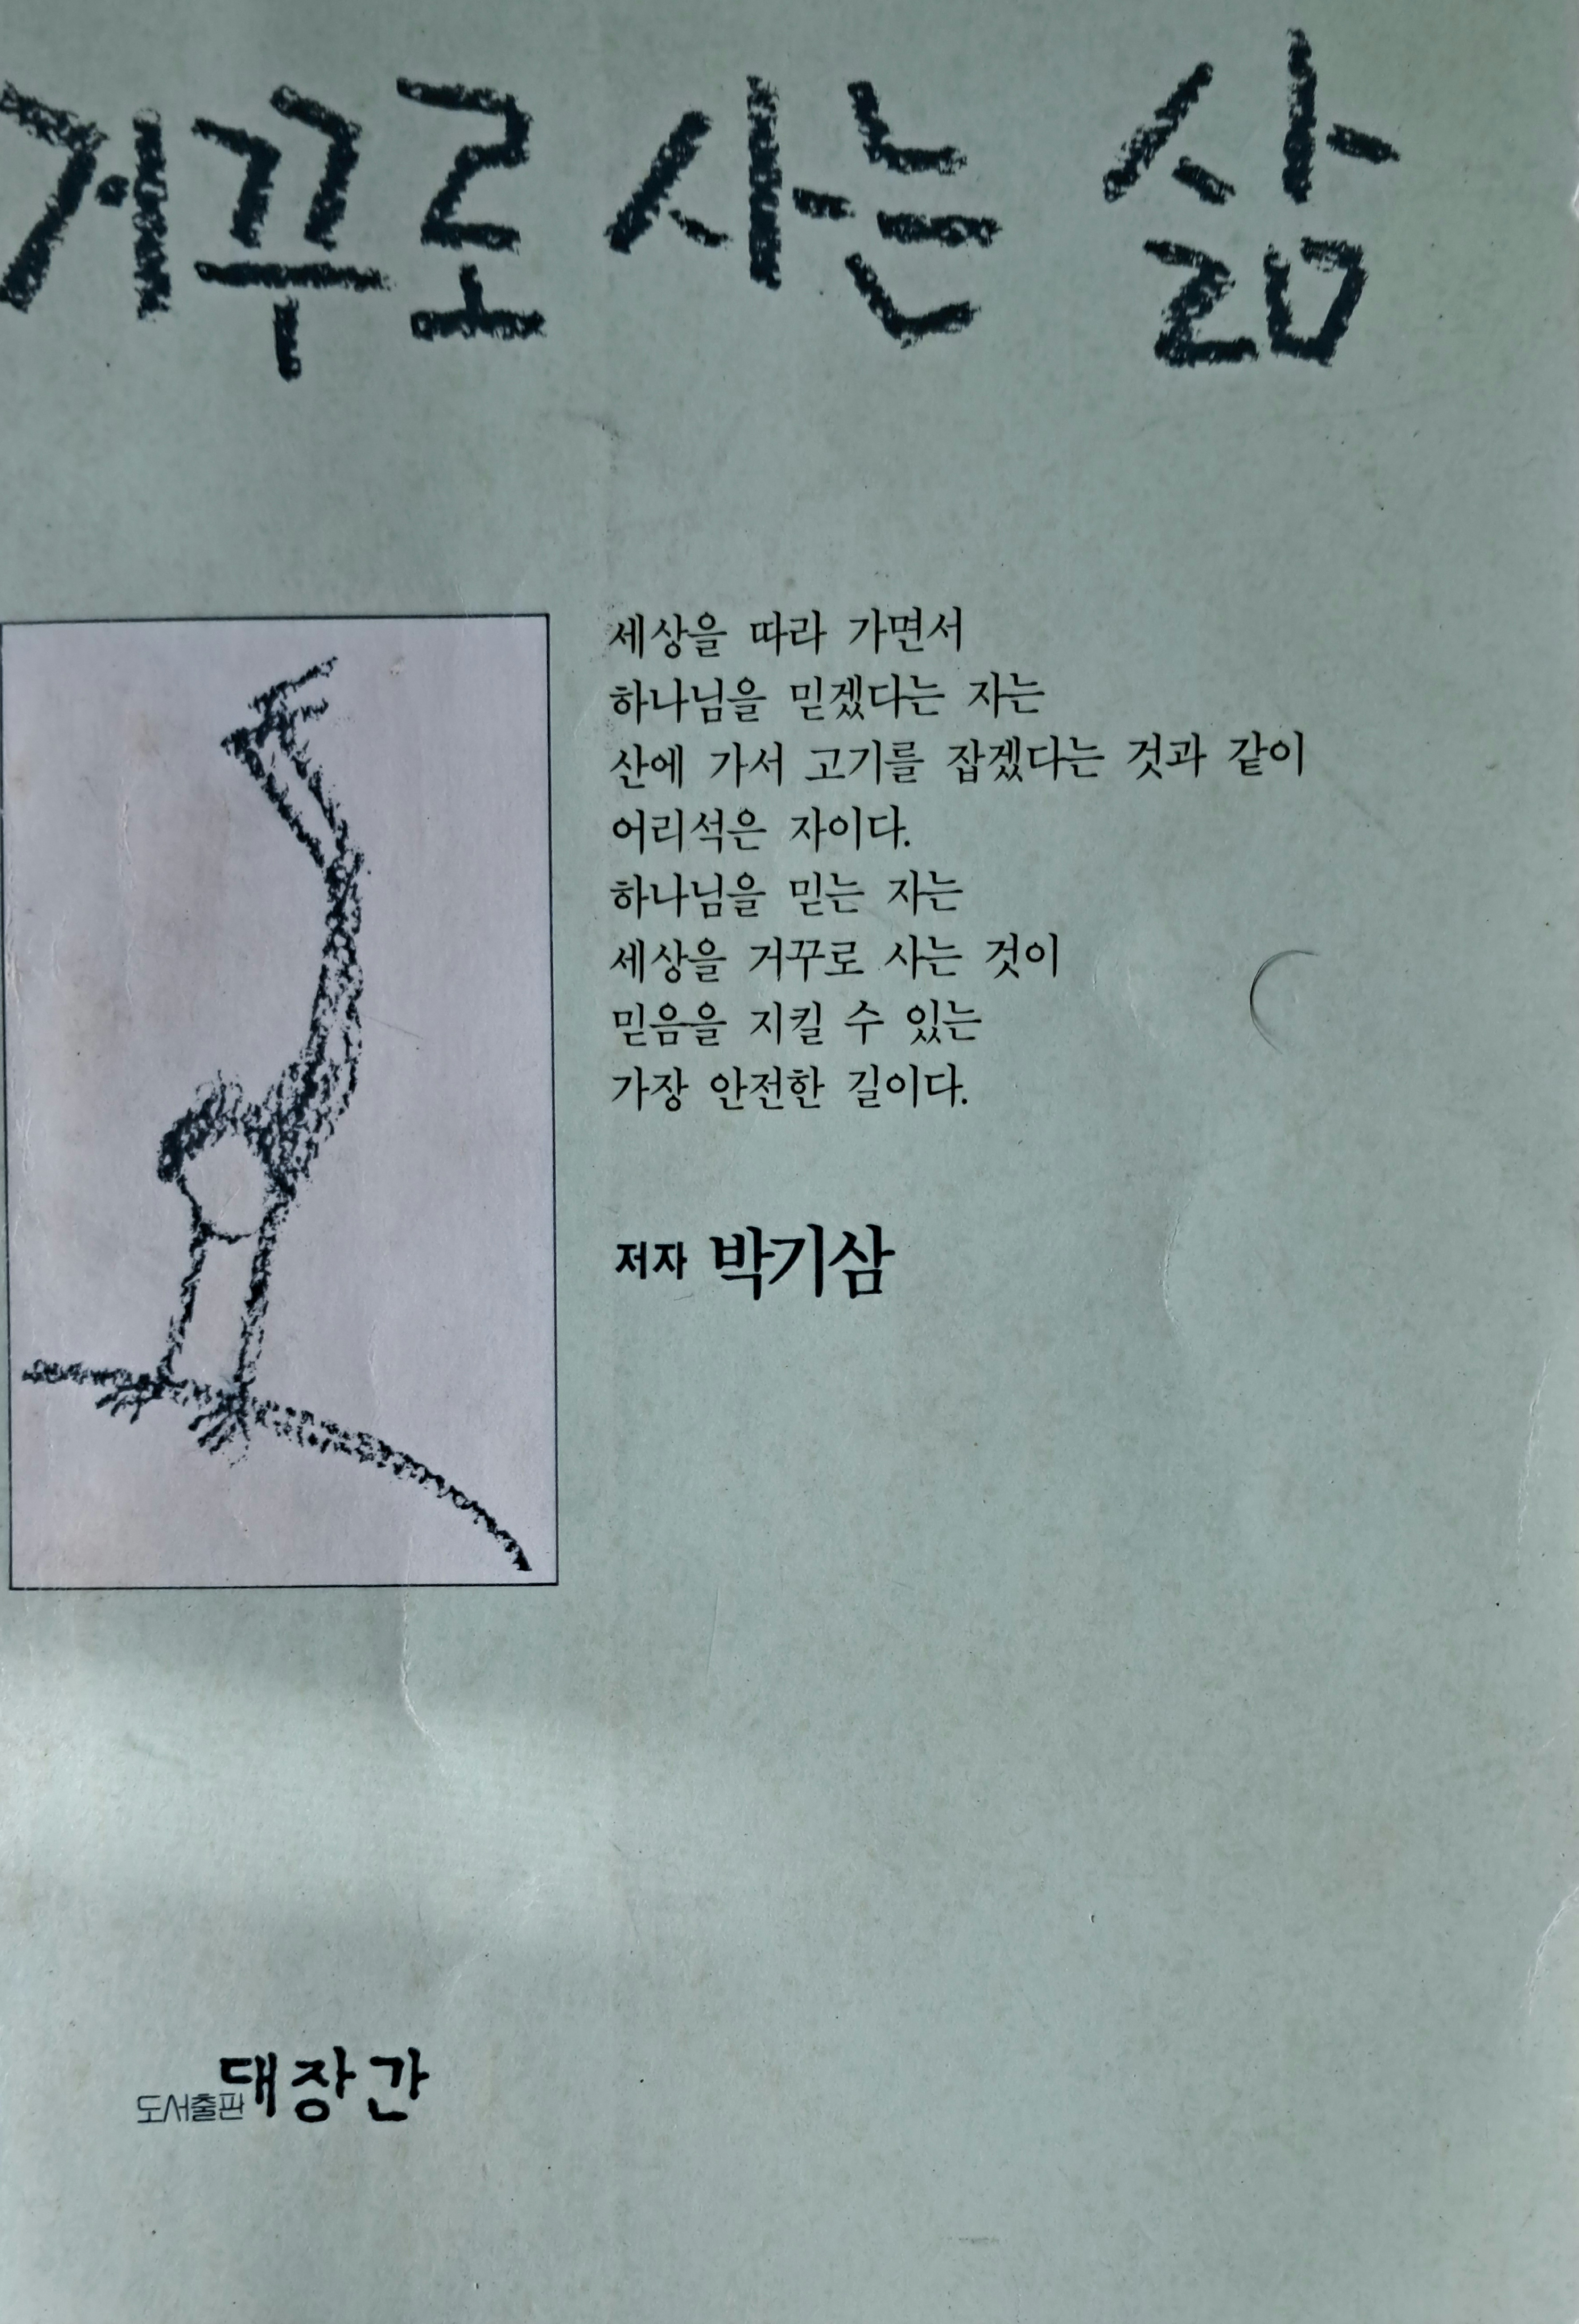 거꾸로 사는 삶
세상을 따라 가면서
하나님을 믿겠다는 자는
산에 가서 고기를 잡겠다는 것과 같이
어리석은 자이다.
하나님을 믿는 자는
세상을 거꾸로 사는 것이
믿음을 지킬 수 있는
가장 안전한 길이다.
저자 박기삼
도서출판 대장간